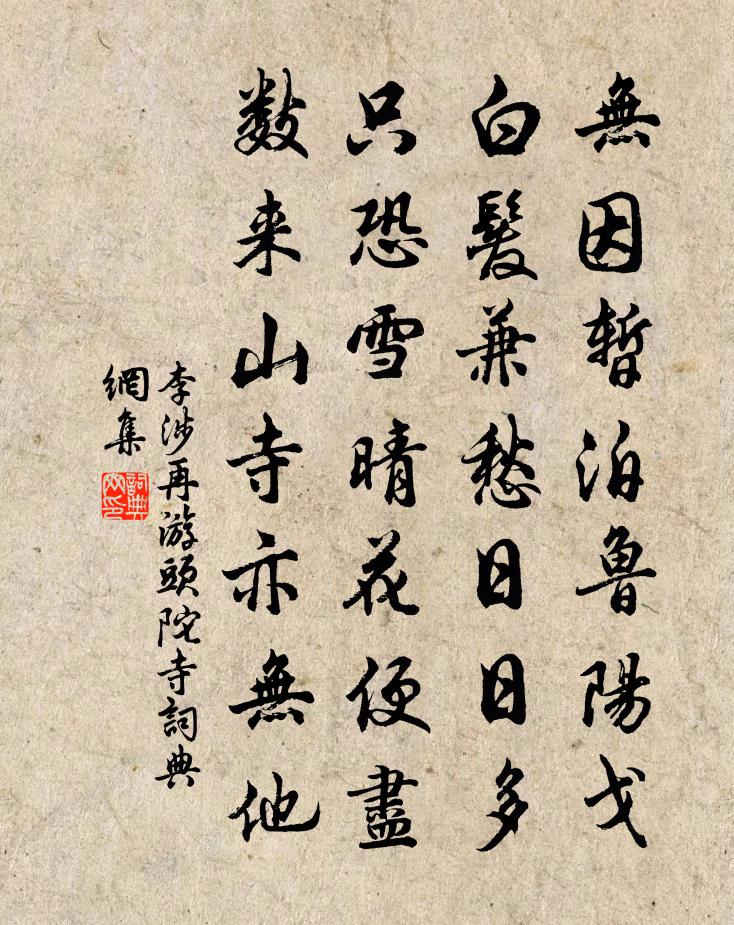 無因暫泊魯陽戈
白髮兼愁日日多
只恐雪晴花便盡
数来山寺亦無他
李涉再游頭陀寺詞典
網集
詞典網印